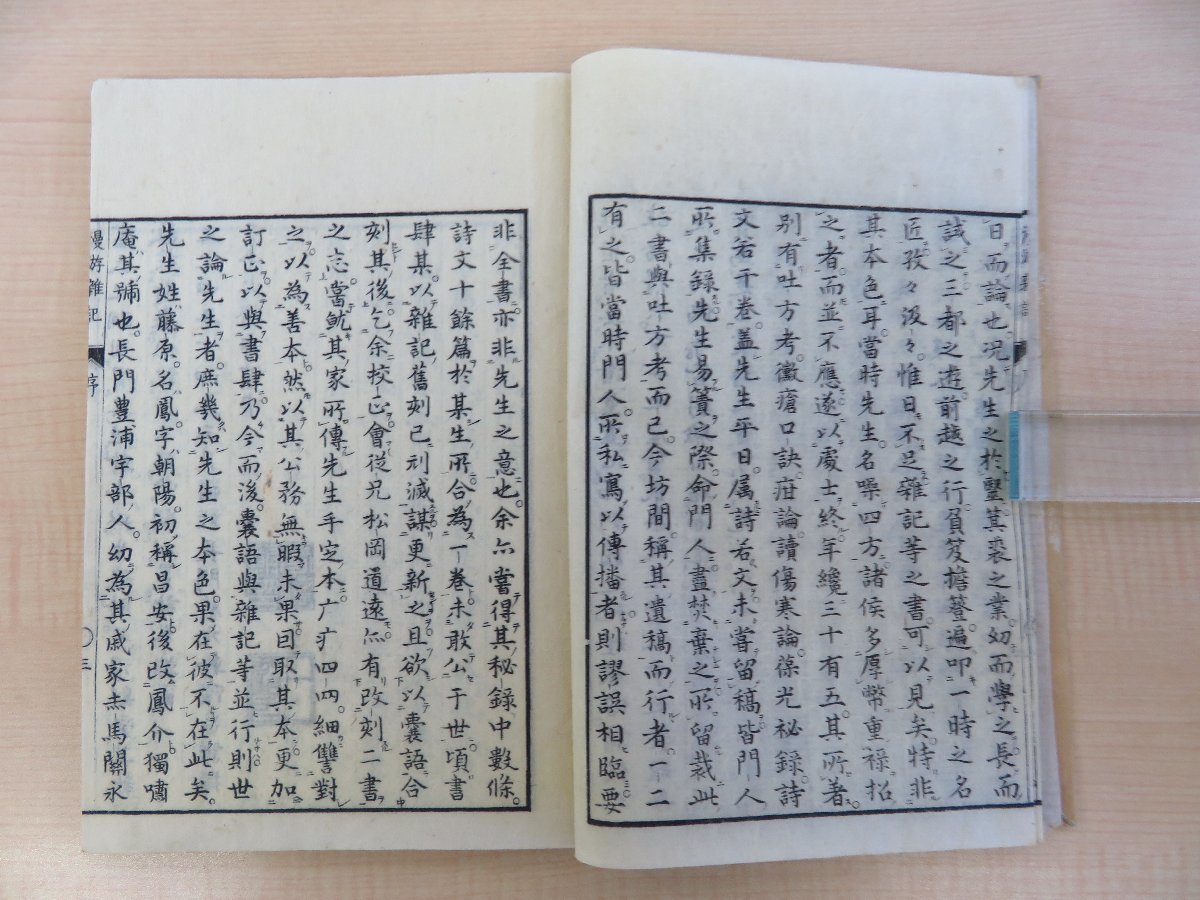 日而論也况先生之於毉箕裘之業幼而學之長而
誠之三都之遊前越之行負笈擔簦遍叩一時之名
匠孜々汲々惟日不足雜記等之書可以見矣特非
其本色耳當時先生名噪四方諸侯多厚幣重祿招
之者而並不應遂以處士終年纔三十有五其所著
別有吐方考黴瘡口訣疳論讀傷寒論葆光秘錄詩
文若干卷盖先生平日属詩若文未嘗留稿皆門人
所集錄先生易簀之際命門人盡焚棄之所留裁此
二書與吐方考而已今坊間稱其遺稿而行者一二
有之皆當時門人所私寫以傳播者則謬誤相臨要
非全書亦非先生之意也余亦嘗得其秘録中數條
詩文十餘篇於某生所合為一卷未敢公于世頃書
肆某以雜記舊刻已刓滅謀更新之且欲以囊語合
刻其後乞余挍正會從兄松岡道遠亦有改刻二書
之志嘗就其家所傳先生手定本
細讐對
之以為善本然以其公務無暇未果回取其本更加
訂正以與書肆乃今而後囊語與雜記等並行則世
之論先生者庶幾知先生之本色果在彼不在此矣
先生姓藤原名鳳字朝陽初稱昌安後改鳳介獨嘯
庵其號也長門豊浦宇部人幼為其戚家赤馬關永
漫遊雜記
序
〇三